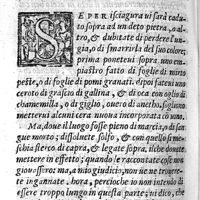 SE PER isciagura vi sarà cadu-
to sopra ad un deto pietra, o al-
tro, & dubitate di perdere l'un-
gia, o di smarrirla del suo colore;
prima ponetevi sopra uno em-
piastro fatto di foglie di mirto
peste, o di foglie di pomi granati. dipoi fateui un
cerotto di grascio di gallina, o di oca con oglio di
chamemilla, o di giglio, ouero di anetho, sogliono
metterui alcuni cera nuoua incorporata co uno.
Ma, doue il luogo fosse pieno di marcia, o di san-
gue morto, dissoluete solfo, & con quello si me-
schia sterco di capra, & legate sopra, il che douete
mettere in effetto; quando le raccontate cose non
giouassero: ma, a mio giudicio, non ue ne troue-
rete ingannate. hora, percioche io non intendo di
essere troppo lungo in questa parte; vi dico, che